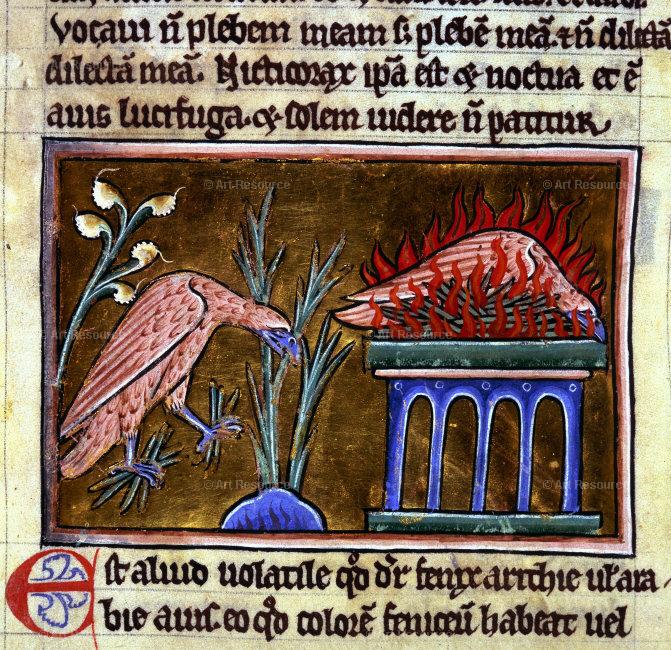 vocaui n̄ plebem meam s; plebē meā. ⁊ n̄ dilectā
dilectā meā. Nicticorax ipā est & noctua et ē
auis lucifuga. & solem uidere n̄ patitur
© Art Resource © Art Resource
Art Resource Art Resource
© Art Resource © Art Resource
Est aliud uolatile qd̄ dr̄ fenix
bie auis. eo qd̄ colorē feniceū habeat uel